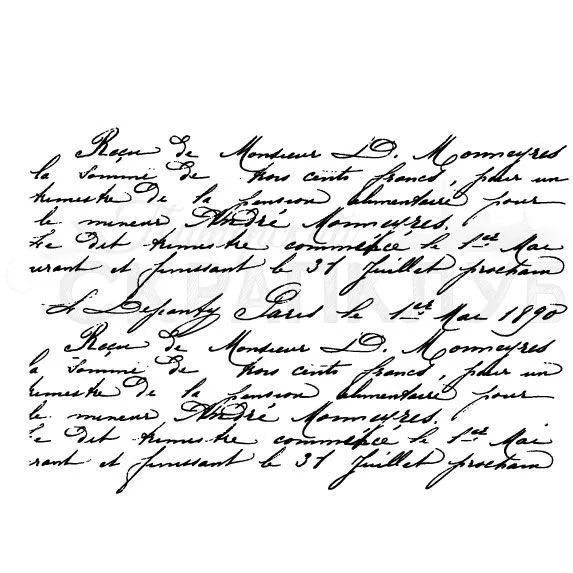 Reçu de Monsieur D. Monneyres
la somme de trois cents francs, pour un
trimestre de la pension alimentaire pour
le mineur André Monneyres.
Le dit trimestre commencé le 1er Mai
urant et finissant le 31 Juillet prochain
Paris le 1er Mai 1890
Reçu de Monsieur D. Monneyres
la somme de trois cents francs, pour un
trimestre de la pension alimentaire pour
le mineur André Monneyres.
Le dit trimestre commencé le 1er Mai
rant et finissant le 31 Juillet prochain
СКРАПКЛУБ